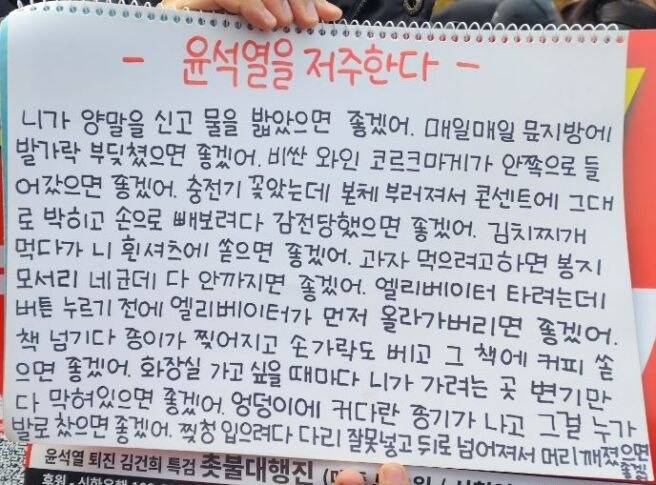 - 윤석열을 저주한다 -
니가 양말을 신고 물을 밟았으면 좋겠어. 매일매일 문지방에
발가락 부딪쳤으면 좋겠어. 비싼 와인 코르크마게가 안쪽으로 들
어갔으면 좋겠어. 충전기 꽂았는데 본체 부러져서 콘센트에 그대
로 박히고 손으로 빼보려다 감전당했으면 좋겠어. 김치찌개
먹다가 니 흰셔츠에 쏟으면 좋겠어. 과자 먹으려고하면 봉지
모서리 네군데 다 안까지면 좋겠어. 엘리베이터 타려는데
버튼 누르기 전에 엘리베이터가 먼저 올라가버리면 좋겠어.
책 넘기다 종이가 찢어지고 손가락도 베이고 그 책에 커피 쏟
으면 좋겠어. 화장실 가고 싶을 때마다 니가 가려는 곳 변기만
다 막혀있으면 좋겠어. 엉덩이에 커다란 종기가 나고 그걸 누가
발로 찼으면 좋겠어. 찢청 입으려다 다리 잘못넣고 뒤로 넘어져서 머리 깨졌으면
좋겠어
윤석열 퇴진 김건희 특검 촛불대행진
후원 - 신한은행